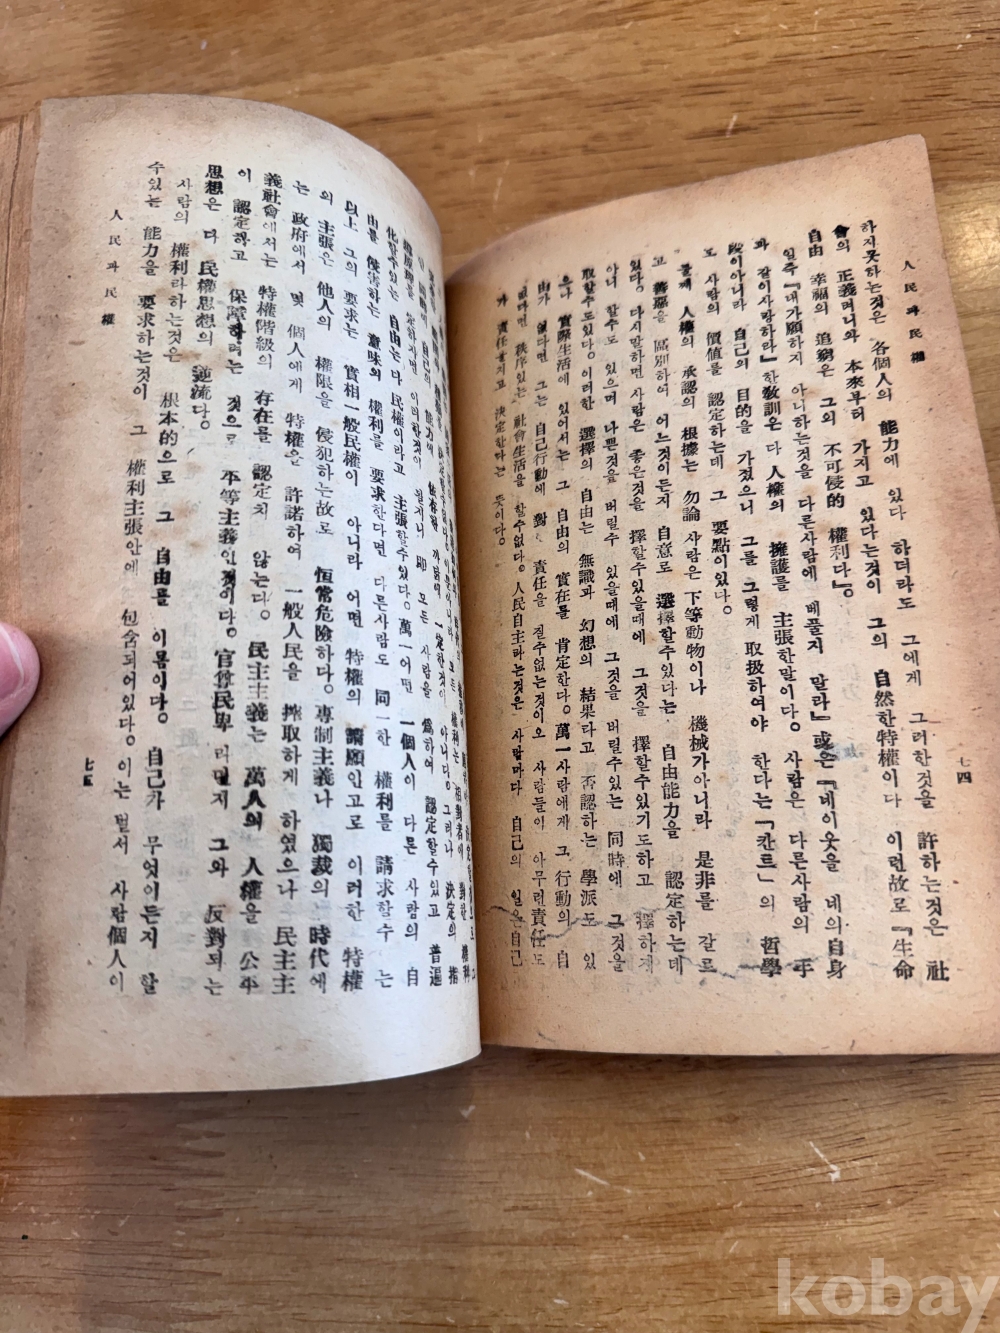 人民과民權
七四
하지못하는것은 各個人의 能力에 있다 하더라도 그에게 그러한것을 許하는것은 社
會의 正義며니와 本來부터 가지고 있다는것이 그의 自然한特權이다 이런故로『生命
自由 幸福의 追窮은 그의 不可侵的 權利다』
일즉『내가願하지 아니하는것을 다른사람에 베풀지 말라』或은『네이웃을 네의自身
과 같이사랑하라』한敎訓은 다 人權의 擁護를 主張한말이다。사람은 다른사람의 手
段이아니라 自己의 目的을 가졌으니 그를 그렇게 取扱하여야 한다는「칸트」의 哲學
도 사람의 價値를 認定하는데 그 要點이있다。
둘째 人權의 承認의 根據는 勿論 사람은 下等動物이나 機械가아니라 是非를 갈르
고 善惡을 區別하여 어느것이든지 自意로 選擇할수있다는 自由能力을 認定하는데
있다。다시말하면 사람은 좋은것을 擇할수있을때에 그것을 擇할수있기도하고 擇하게
아니 할수도 있으며 나쁜것을 버릴수 있을때에 그것을 버릴수있는 同時에 그것을
取할수도있다。이러한 選擇의 自由는 無識과 幻想의 結果라고 否認하는 學派도 있
으나 實際生活에 있어서는 그 自由의 實在를 肯定한다。萬一사람에게 그 行動의 自
由가 없다면 그는 自己行動에 對한 責任을 질수없는것이오 사람들이 아무런責任도
없다면 秩序있는 社會生活을 할수없다。人民自主라는것은 사람마다 自己의 일은自己
가 責任을지고 決定한다는 뜻이다。
定하자면 이러하것이 될지니 即 모든 사람을 爲하여 認定할수있고 普遍
化할수있는 自由는다 民權이라고 主張할수있다。萬一어떤 一個人이 다른 사람의 自
由를 侵害하는 意味의 權利를 要求한다면 다른사람도 同一한 權利를 請求할수 는
以上 그의 要求는 實相一般民權이 아니라 어떤 特權의 請願인고로 이러한 特權
의 主張은 他人의 權限을 侵犯하는故로 恒常危險하다。專制主義나 獨裁의 時代에
는 政府에서 몇 個人에게 特權을 許諾하여 一般人民을 搾取하게 하였으나 民主主
義社會에서는 特權階級의 存在를 認定치 않는다。民主主義는 萬人의 人權을 公平
이 認定하고 保障하려는 것으로 平等主義인것이다。官尊民卑 라던지 그와 反對되는
思想은 다 民權思想의 逆流다。
사람의 權利라하는것은 根本的으로 그 自由를 이름이다。自己가 무엇이든지 할
수있는 能力을 要求하는것이 그 權利主張안에 包含되어있다。이는 멀서 사람個人이
人民과民權
七五
kobay